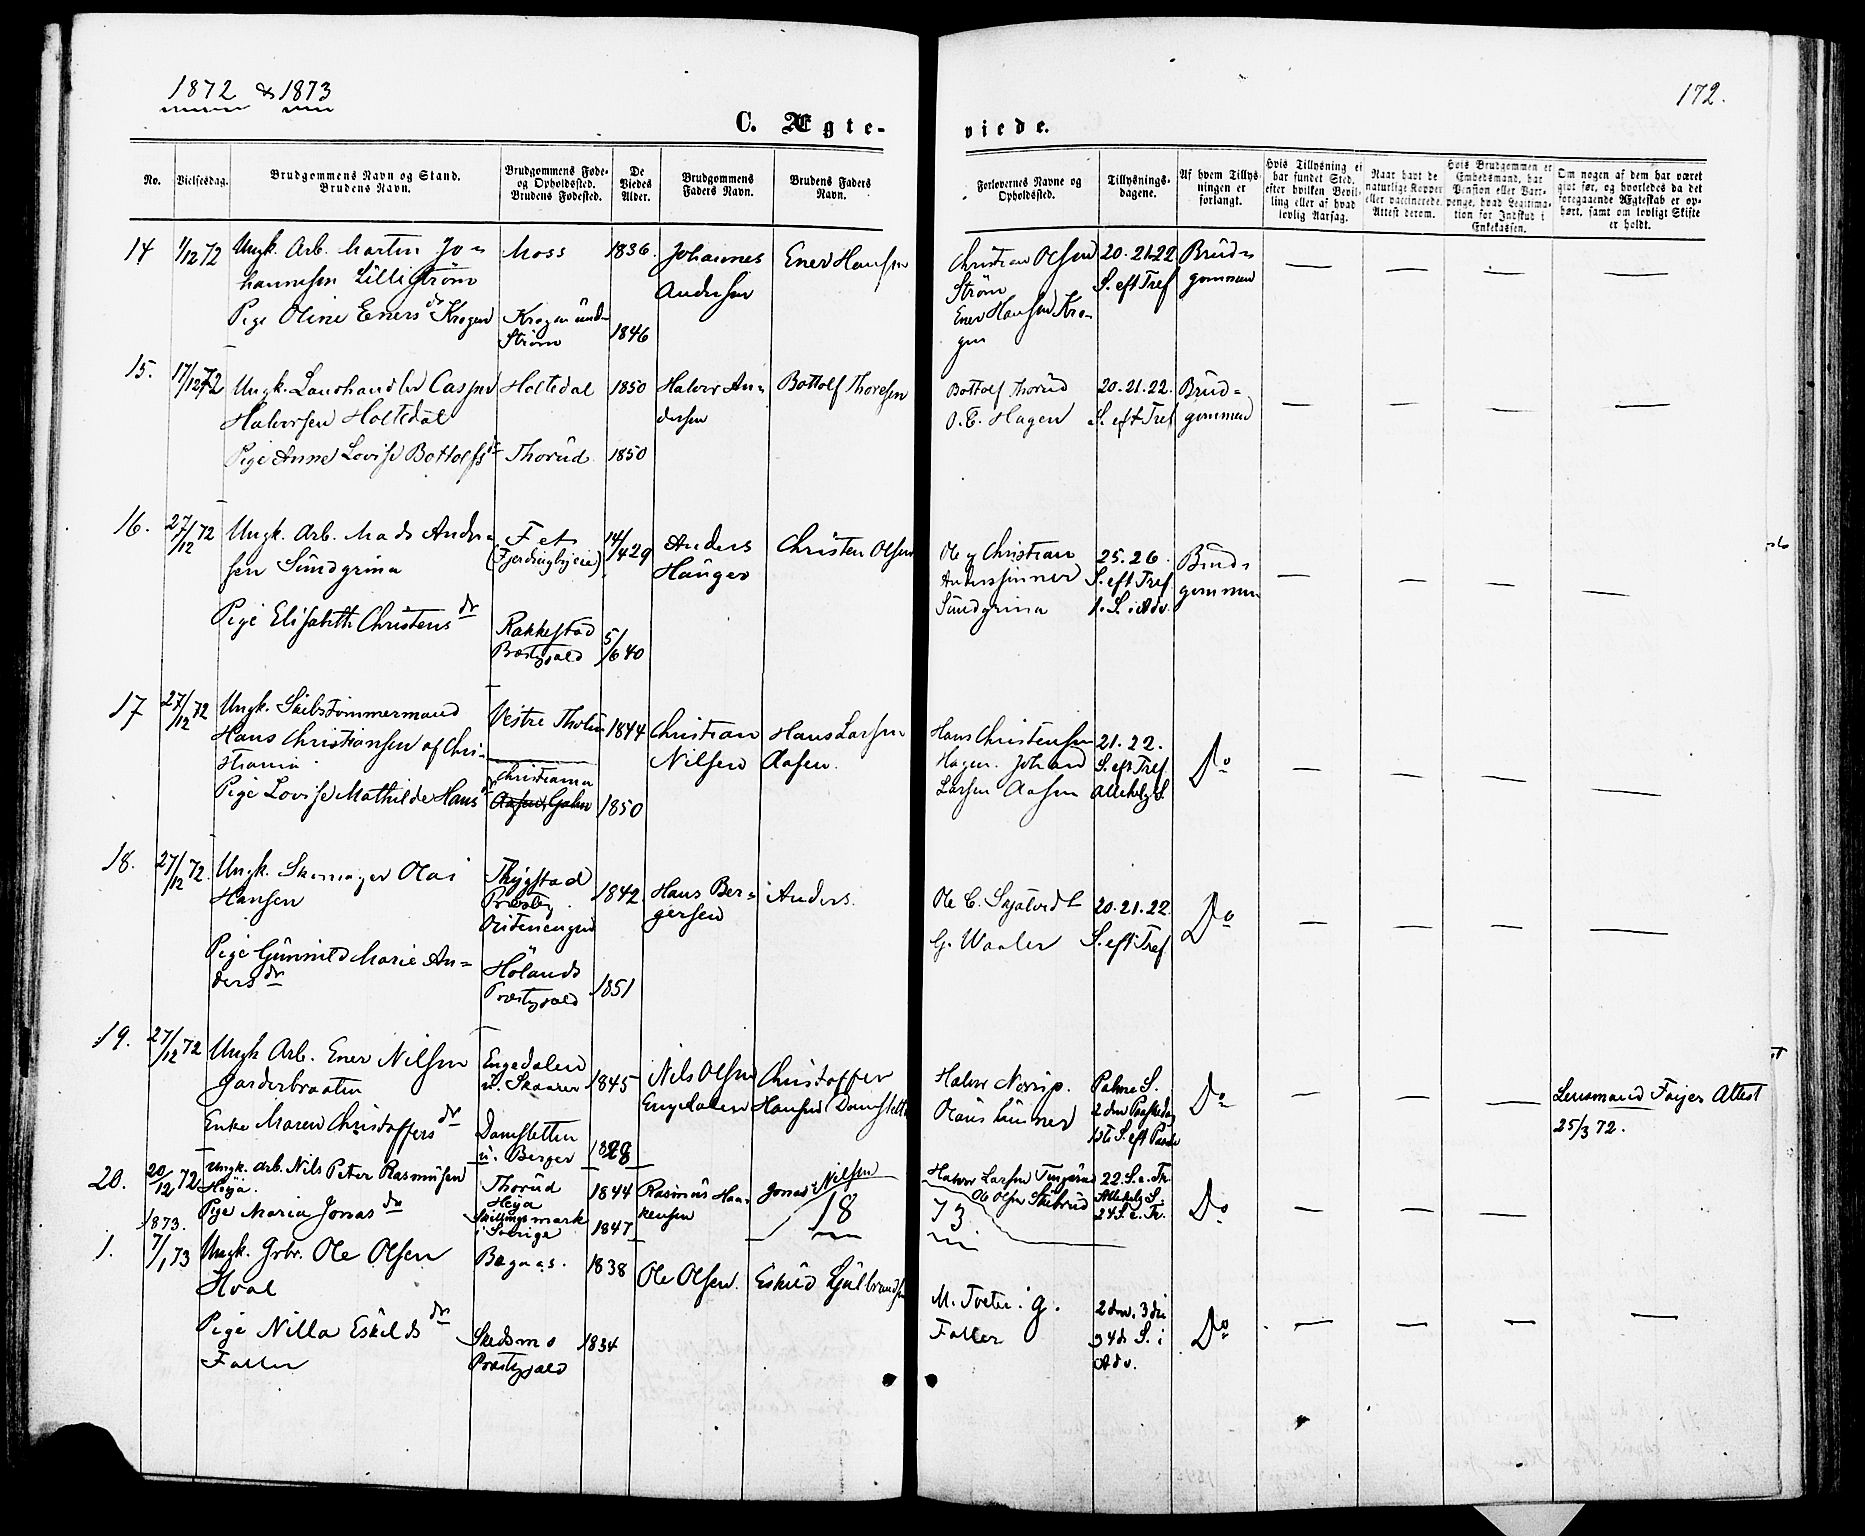 1872 & 1873
172.
C. Ægte-
viede.
No.
Vielsesdag.
Brudgommens Navn og Stand.
Brudens Navn.
Brudgommens Føde-
og Opholdsted.
Brudens Fødested.
De
Viedes
Alder.
Brudgommens
Faders Navn.
Brudens Faders
Navn.
Forlovernes Navne og
Opholdssted.
Tillysnings-
dagene.
Af hvem Tillys-
ningen er
forlangt.
Hvis Tillysning ei
har fundet Sted,
efter hvilken Bevil-
ling eller af hvad
lovlig Aarsag.
Naar havt de
naturlige Kopper
eller vaccinerede.
Attest derom.
Hvis Brudgommen er
Embedsmand, har
Pension eller Vart-
penge, hvad Legitima-
tion for Indskud i
Enkekassen.
Om nogen af dem har været
gift før, og hvorledes da det
foregaaende Ægteskab er op-
hørt, samt om lovligt Skifte
er holdt.
14
1/12 72
Ungk. Arb. Martin Jo=
hannesen Lillestrøm
Pige Oline Eners dr Krogen
Moss
Krogen und=
Strøm
1836.
1846
Johannes
Andersen
Ener Hansen
Christian Olsen
Strøm
Ener Hansen Kro-
gen
20. 21. 22
S. eft Tref
Brud=
gommen
15.
17/12 72
Ungk. Landhandler Casper
Halvorsen Holtedal
Pige Anne Lovise Bottolfs dr
Holtedal
Thorud
1850
1850
Halvor An=
dersen
Bottolf Thoresen
Bottolf Thorud
O. E. Hagen
20. 21. 22.
S. eft Tref
Brud=
gommen
16.
27/12 72
Ungk. Arb. Mads Ander=
sen Sundgrina
Pige Elisabeth Christens dr
Fet
(Fjerdingbyeie)
Rakkestad
Præstegjæld
14/4 29
5/6 40
Anders
Hauger
Christen Olsen
Ole og Christian
Anderssønner
Sundgrina
25. 26.
S. eft Tref
1. S. i Adv.
Brud=
gommen
17
27/12 72
Ungk. Skibstømmermand
Hans Christiansen af Chri-
stiania
Pige Lovise Mathilde Hans dr
Vestre Tholen
Christiania
1844
1850
Christian
Nilsen
Hans Larsen
Aasen.
Hans Christensen
Hagen. Johan
Larsen Aasen
21. 22.
S. eft Tref
Allehelg S.
Do
18.
27/12 72.
Ungk. Skomager Olai
Hansen
Pige Gunnild Marie An=
ders dr
Thrygstad
Præsteg.
Hølands
Præstegjæld
1842.
1851
Hans Ber=
gersen
Anders.
G. Waaler
20. 21. 22.
S. eft Tref
Do
19.
27/12 72
Ungk Arb. Ener Nilsen
Garderbraaten
Enke Maren Christoffers dr
Engedalen
u. Skaarer
Damsletten
u. Berger
1845
1828
Nils Olsen
Engedalen
Christoffer
Hansen Damslett
Palme S.
2den Paaskedag
1ste S. eft Paaske
Do
Lensmand Faijes Attest
25/3 72.
20.
20/12 72
Ungk. Arb. Nils Peter Rasmusen
Høija.
Pige Maria Jonas dr
Thorud
Høija
Skillingsmark
i Sverige
1844
1847
Rasmus Haa=
kensen
Jonas Nilsen
Halvor Larsen Tingerud
Ole Olsen Skibrud
22. S. e. Tr.
Allehelg S.
24 S. e. Tr.
Do
1873.
18
73
1.
7/1 73
Ungk. Grbr. Ole Olsen
Hval
Pige Nilla Eskilds dr
Faller
Bagaas.
Skedsmo
Præstegjæld
1838
1834
Ole Olsen.
Eskild Gulbrands
M. Tveter. G.
Faller
2den. 3die
3 4de S. i
Adv.
Do